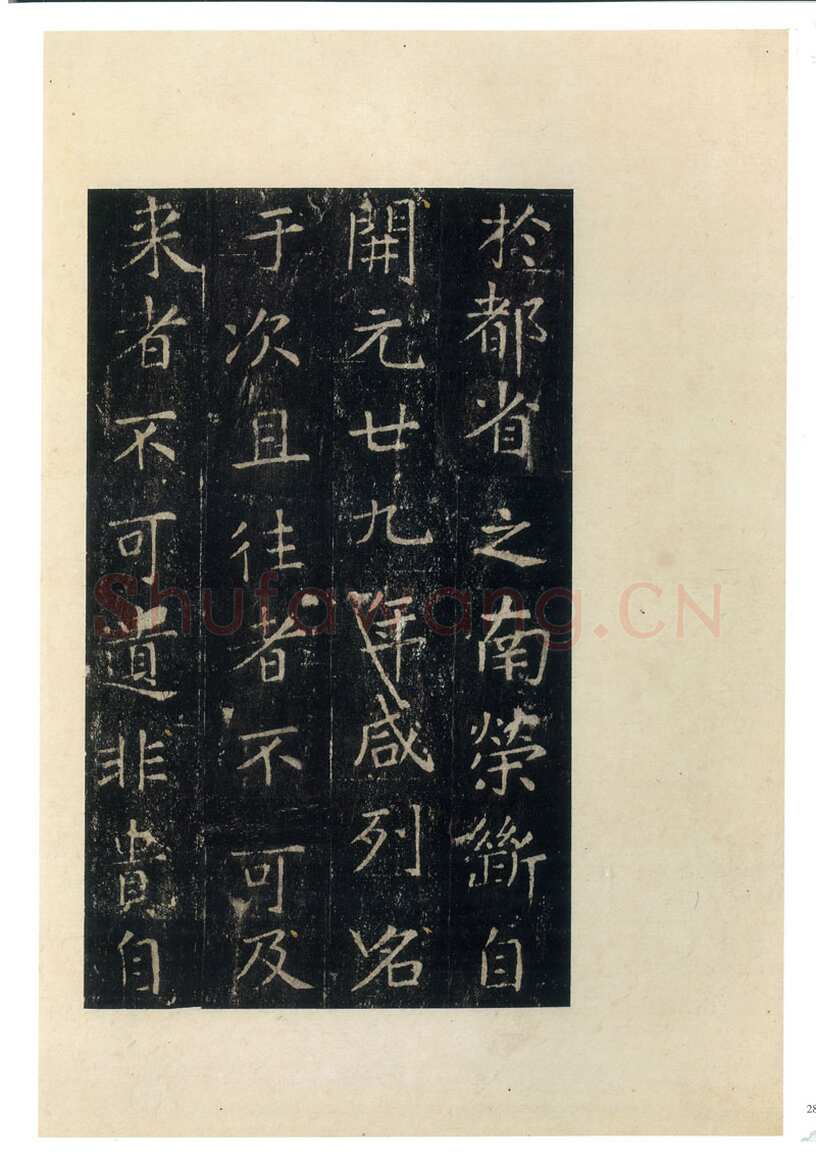 扵都省之南榮斷自
開元廿九年咸列名
于次且往者不可及
来者不可道非貴自
Shufawang.CN
28